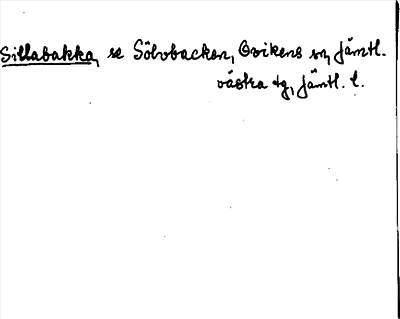 Sillabakka, se Sölvbacken, Ovikens sn, Jämtl.
västra tg, Jämtl. l.